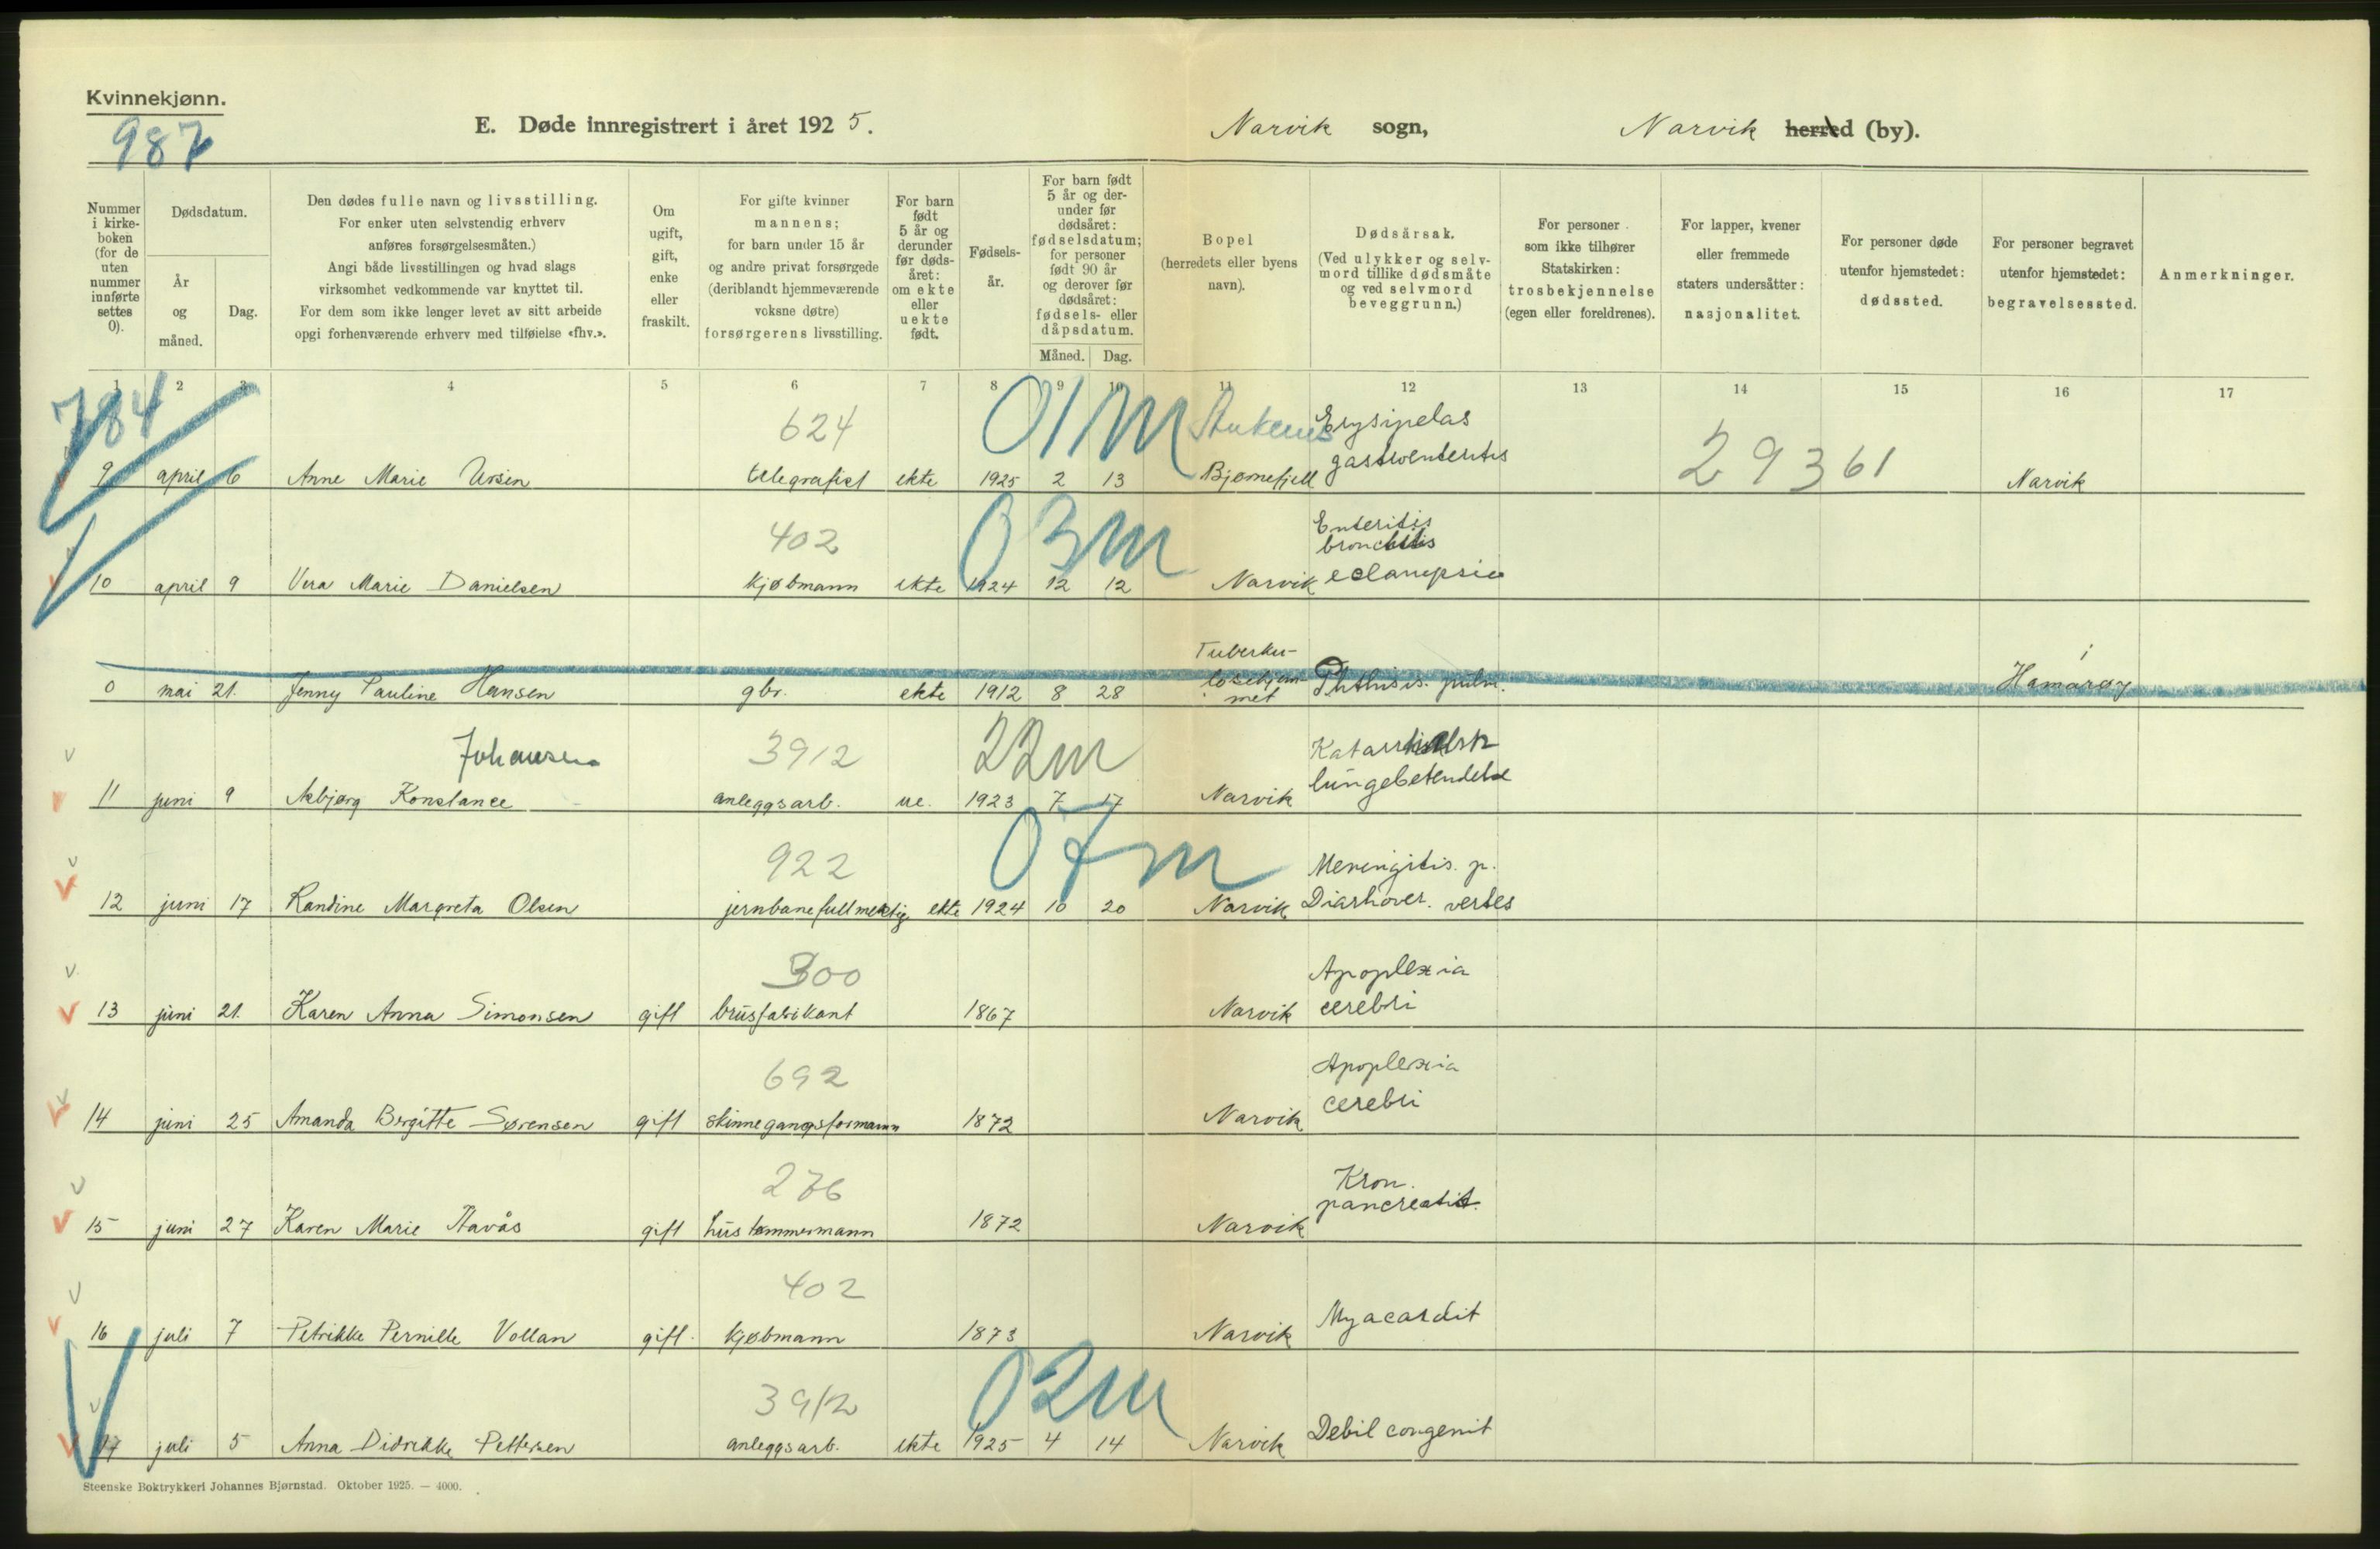 Kvinnekjønn.
987
E. Døde innregistrert i året 1925. Narvik sogn, Narvik herred (by).
Nummer i kirkeboken (for de uten nummer innførte settes 0).
Dødsdatum.
År og måned.
Dag.
Den dødes fulle navn og livsstilling.
For enker uten selvstendig erhverv
anføres forsørgelsesmåten.)
Angi både livsstillingen og hvad slags
virksomhet vedkommende var knyttet til.
For dem som ikke lenger levet av sitt arbeide
opgi forhenværende erhverv med tilføielse «fhv.».
Om ugift, gift, enke eller fraskilt.
For gifte kvinner
mannens;
for barn under 15 år
og andre privat forsørgede
(deriblandt hjemmeværende
voksne døtre)
forsørgerens livsstilling.
For barn født 5 år og derunder før dødsåret: om ekte eller uekte født.
Fødselsår.
For barn født 5 år og derunder før dødsåret: fødselsdatum; for personer født 90 år og derover før dødsåret: fødsels- eller dåpsdatum.
Måned. Dag.
Bopel
(herredets eller byens
navn).
Dødsårsak.
(Ved ulykker og selvmord tillike dødsmåte og ved selvmord beveggrunn.)
For personer
som ikke tilhører
Statskirken:
trosbekjennelse
(egen eller foreldrenes).
For lapper, kvener
eller fremmede
staters undersåtter:
nasjonalitet.
For personer døde
utenfor hjemstedet:
dødssted.
For personer begravet
utenfor hjemstedet:
begravelsessted.
Anmerkninger.
1 2 3 4 5 6 7 8 9 10 11 12 13 14 15 16 17
784 624 01m Erysipelas
9 april 6 Anne Marie Ursin telegrafist ekte 1925 2 13 Bjørnefjell gastroenteritis 29361 Narvik
402 03m Enteritis
bronchitis
10 april 9 Vera Marie Danielsen kjøbmann ekte 1924 12 12 Narvik eclampsia
Tuberku-
0 mai 21. Jenny Pauline Hansen gbr. ekte 1912 8 28 losehjem- Phthisis. pulm. i Hamarøy
met
Johansen 3912 22m Katarrhalsk
11 juni 9 Asbjørg Konstance anleggsarb. ue. 1923 7 17 Narvik lungebetendelse
922 07m Meningitis. p.
12 juni 17 Randine Margreta Olsen jernbanefullmektig ekte 1924 10 20 Narvik Diarhover. vertes
300 Apoplexia
13 juni 21. Karen Anna Simonsen gift brusfabrikant 1867 Narvik cerebri
692 Apoplexia
14 juni 25 Amanda Bergitte Sørensen gift skinnegangsformann 1872 Narvik cerebri
276 Kron.
15 juni 27 Karen Marie gift hustømmermann 1872 Narvik pancreatit.
402
16 juli 7 Petrikke Pernille Vollan gift. kjøbmann 1873 Narvik Myacardit
3912 02m
17 juli 5 Anna Didrikke Pettersen anleggsarb. ekte 1925 4 14 Narvik Debil congenit
Steenske Boktrykkeri Johannes Bjørnstad. Oktober 1925. — 4000.